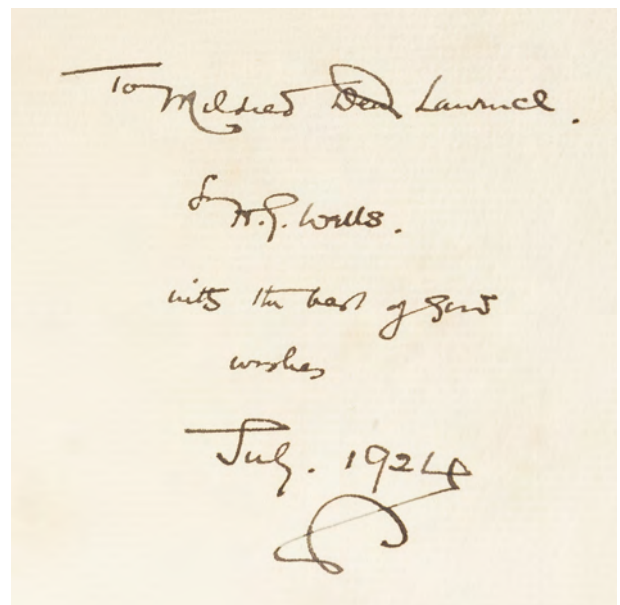 To Mildred Dean Lawrence.
fr H.G. Wells.
with the best of good
wishes
July. 1924